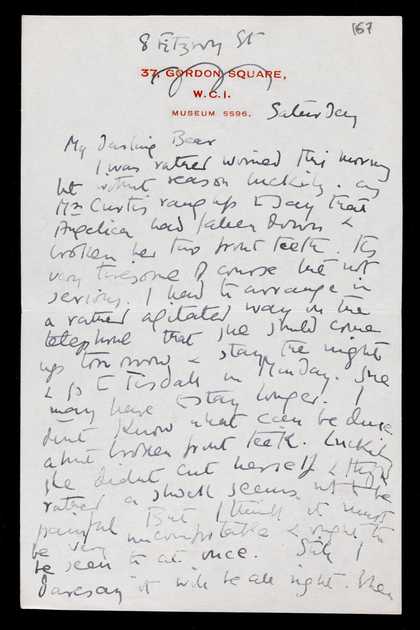 167
8 Fitzroy St
37, GORDON SQUARE,
W.C.1.
MUSEUM 5596.
Saturday
My darling Bear
I was rather worried this morning
but without reason luckily. as
Mrs Curtis rang up to say that
Angelica had fallen down &
broken her two front teeth. Its
very tiresome of course but not
serious. I had to arrange in
a rather agitated way on the
telephone that she should come
up tomorrow & stay the night
& go to Tisdall on Monday. She
may have to stay longer. I
dont know what can be done
about broken front teeth. Luckily
she didnt cut herself &
rather a shock seems not to be
painful. But I think it must
be very uncomfortable & ought to
be seen to at once. Still I
daresay it will be all right. When